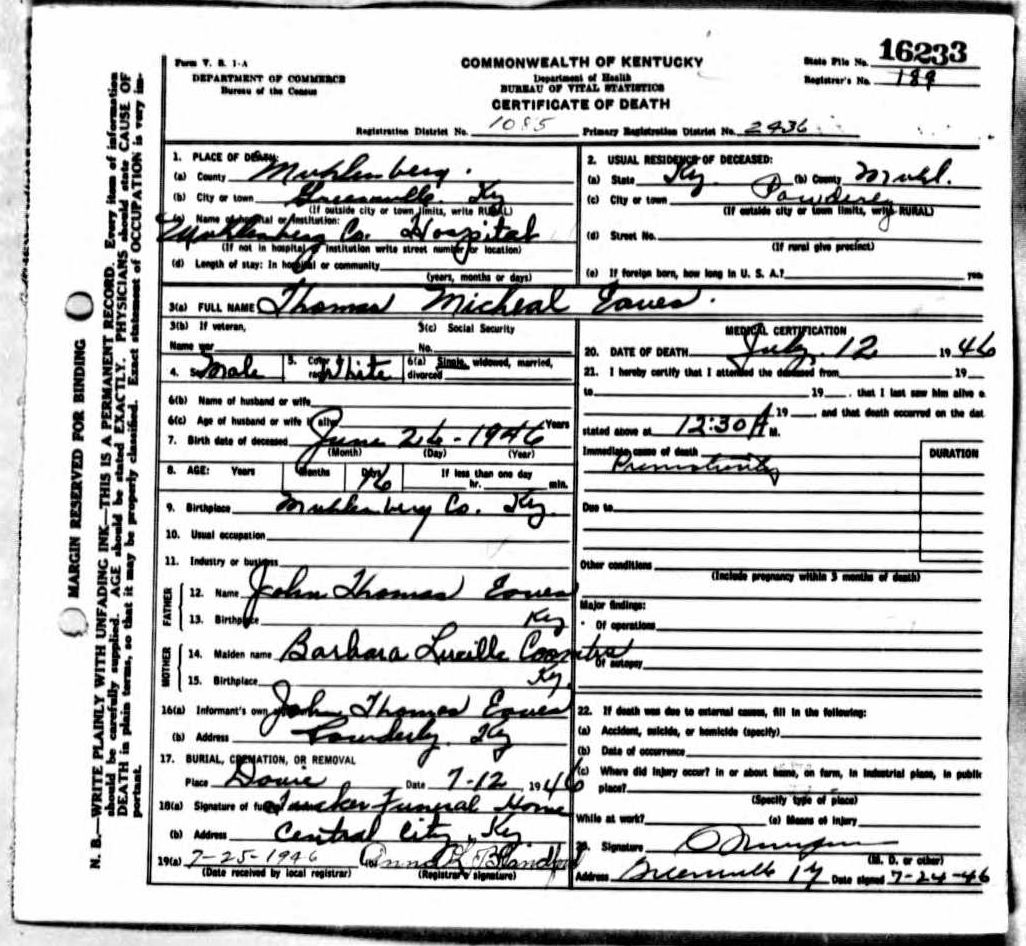 Form V. S. 1-A
DEPARTMENT OF COMMERCE
Bureau of the Census
COMMONWEALTH OF KENTUCKY
Department of Health
BUREAU OF VITAL STATISTICS
CERTIFICATE OF DEATH
State File No. 16233
Registrar's No. 189
Registration District No. 1085 Primary Registration District No. 2436
MARGIN RESERVED FOR BINDING
N. B.—WRITE PLAINLY WITH UNFADING INK—THIS IS A PERMANENT RECORD. Every item of information
should be carefully supplied. AGE should be stated EXACTLY. PHYSICIANS should state CAUSE OF
DEATH in plain terms, so that it may be properly classified. Exact statement of OCCUPATION is very im-
portant.
1. PLACE OF DEATH:
(a) County Muhlenberg.
(b) City or town Greenville. Ky
(If outside city or town limits, write RURAL)
(c) Name of hospital or institution:
Muhlenberg Co. Hospital
(If not in hospital or institution write street number or location)
(d) Length of stay: In hospital or community
(years, months or days)
2. USUAL RESIDENCE OF DECEASED:
(a) State Ky. (b) County Muhl.
(c) City or town Powderly
(If outside city or town limits, write RURAL)
(d) Street No.
(If rural give precinct)
(e) If foreign born, how long in U. S. A.? yea
3(a) FULL NAME Thomas Micheal Eaves.
3(b) If veteran, 3(c) Social Security
Name war No.
4. Sex Male 5. Color race White 6(a) Single, widowed, married,
divorced
6(b) Name of husband or wife
6(c) Age of husband or wife if alive Years
7. Birth date of deceased June 26-1946
(Month) (Day) (Year)
8. AGE: Years Months Days 16 If less than one day
hr. min.
9. Birthplace Muhlenberg Co. Ky.
10. Usual occupation
11. Industry or business
FATHER
12. Name John Thomas Eaves
13. Birthplace Ky
MOTHER
14. Maiden name Barbara Lucille Coomtes
15. Birthplace Ky.
16(a) Informant's own John Thomas Eaves
(b) Address Powderly. Ky
17. BURIAL, CREMATION, OR REMOVAL
Place Date 7-12, 1946
18(a) Signature of Tucker Funeral Home
(b) Address Central City, Ky
19(a) 7-25-1946 (b) Anna L. Blandford
(Date received by local registrar) (Registrar's signature)
MEDICAL CERTIFICATION
20. DATE OF DEATH July. 12 1946
21. I hereby certify that I attended the deceased from 19
to 19 , that I last saw him alive o
19 , and that death occurred on the dat
stated above at 12:30 A M.
Immediate cause of death DURATION
Prematurity
Due to
Other conditions
(Include pregnancy within 3 months of death)
Major findings:
Of operations
Of autopsy
22. If death was due to external causes, fill in the following:
(a) Accident, suicide, or homicide (specify)
(b) Date of occurrence
(c) Where did injury occur? In or about home, on farm, in industrial place, in public
place?
(Specify type of place)
While at work? (e) Means of Injury
23. Signature
(M. D. or other)
Address Greenville Ky Date signed 7-24-46